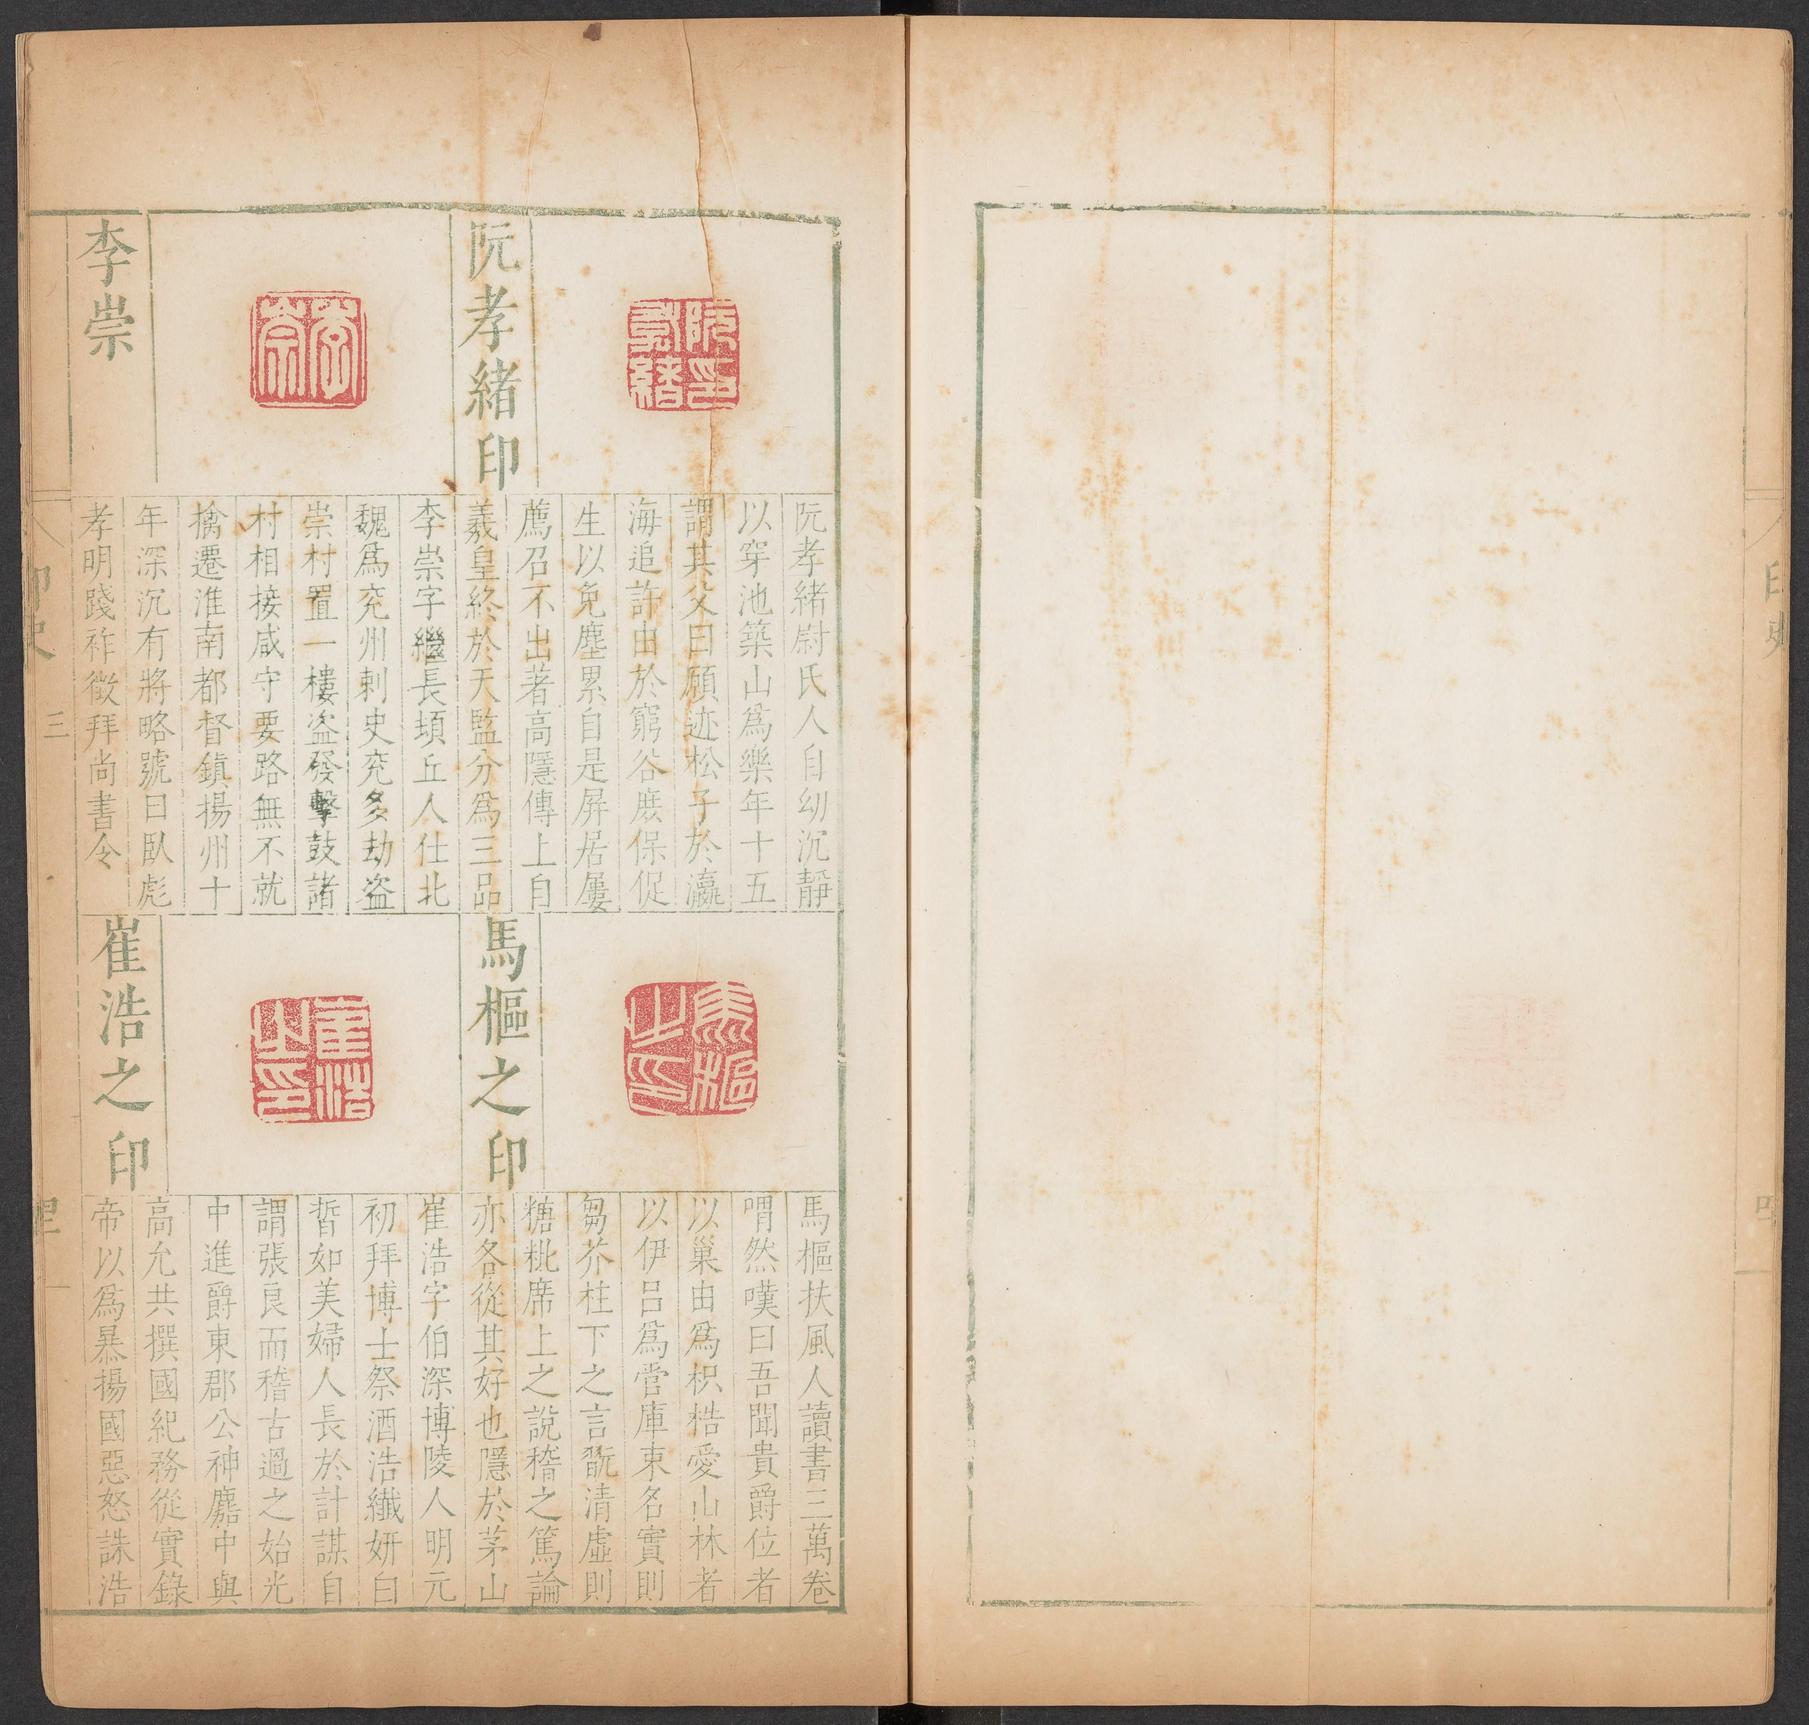 阮孝緒印
阮孝緒尉氏人自幼沉靜
以穿池築山爲樂年十五
謂其父曰願迹松子於瀛
海追許由於窮谷庶保促
生以免塵累自是屏居屢
薦召不出著高隱傳上自
羲皇終於天監分爲三品
李崇
李崇字繼長頓丘人仕北
魏爲兖州刺史兖多劫盗
崇村置一樓盗發擊鼓諸
村相接咸守要路無不就
擒遷淮南都督鎮揚州十
年深沉有將略號曰臥彪
孝明踐祚徵拜尚書令
馬樞之印
馬樞扶風人讀書三萬卷
喟然嘆曰吾聞貴爵位者
以巢由爲桎梏愛山林者
以伊呂爲管庫束名實則
芻芥柱下之言翫清虛則
糖秕席上之說稽之篤論
亦各從其好也隱於茅山
崔浩之印
崔浩字伯深博陵人明元
初拜博士祭酒浩纖妍白
晢如美婦人長於計謀自
謂張良而稽古過之始光
中進爵東郡公神䴥中與
高允共撰國紀務從實錄
帝以爲暴揚國惡怒誅浩
印史
三